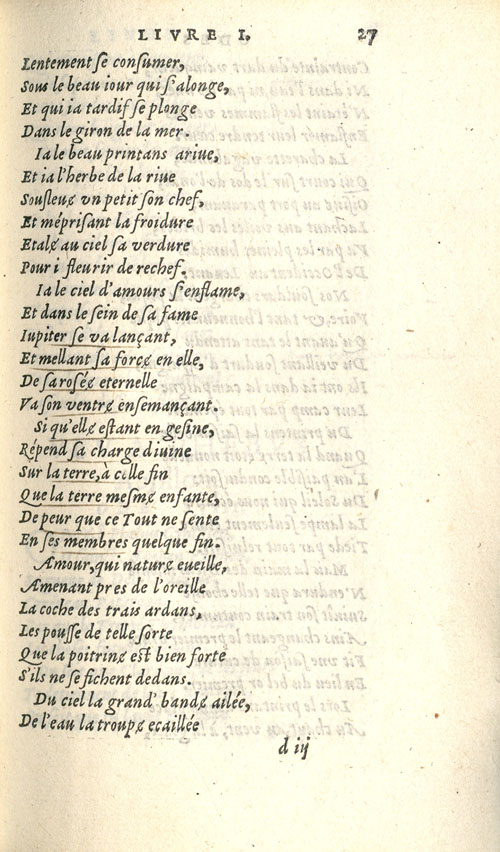 LIVRE I. 27
Lentement se consumer,
Sous le beau iour qui s'alonge,
Et qui ia tardif se plonge
Dans le giron de la mer.
Ia le beau printans ariue,
Et ia l'herbe de la riue
Soufleuɇ vn petit son chef,
Et méprisant la froidure
Etalɇ au ciel sa verdure
Pour i fleurir de rechef.
Ia le ciel d'amours s'enflame,
Et dans le sein de sa fame
Iupiter se va lançant,
Et mellant sa forcɇ en elle,
De sa roséɇ eternelle
Va son ventrɇ ensemançant.
Si qu'ellɇ estant en gesine,
Répend sa charge diuine
Sur la terre, à celle fin
Que la terre mesmɇ enfante,
De peur que ce Tout ne sente
En ses membres quelque fin.
Amour, qui naturɇ eueille,
Amenant pres de l'oreille
La coche des trais ardans,
Les pousse de telle sorte
Que la poitrinɇ est bien forte
S'ils ne se fichent dedans.
Du ciel la grand' bandɇ ailée,
De l'eau la troupɇ ecaillée
d iij